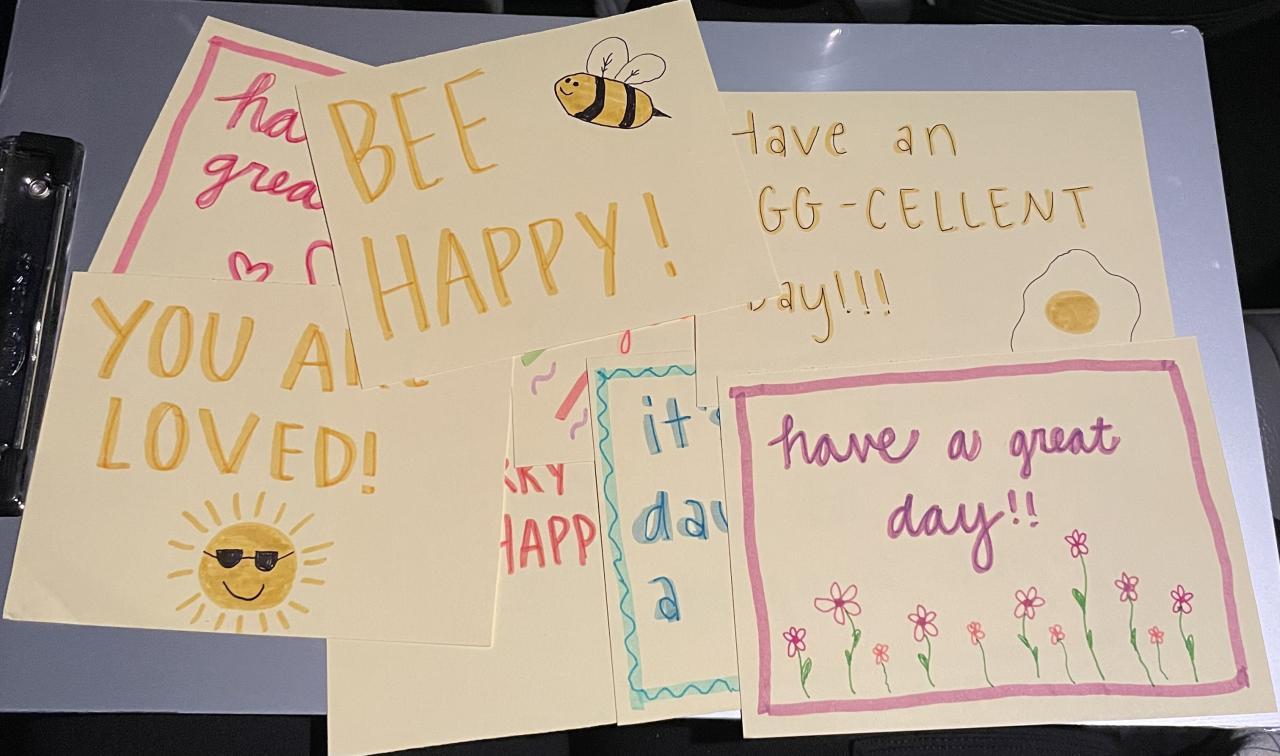 ha
grea
BEE
HAPPY!
Have an
GG-CELLENT
Day!!!
YOU ARE
LOVED!
RKY
HAPP
it's
day
a
have a great
day!!